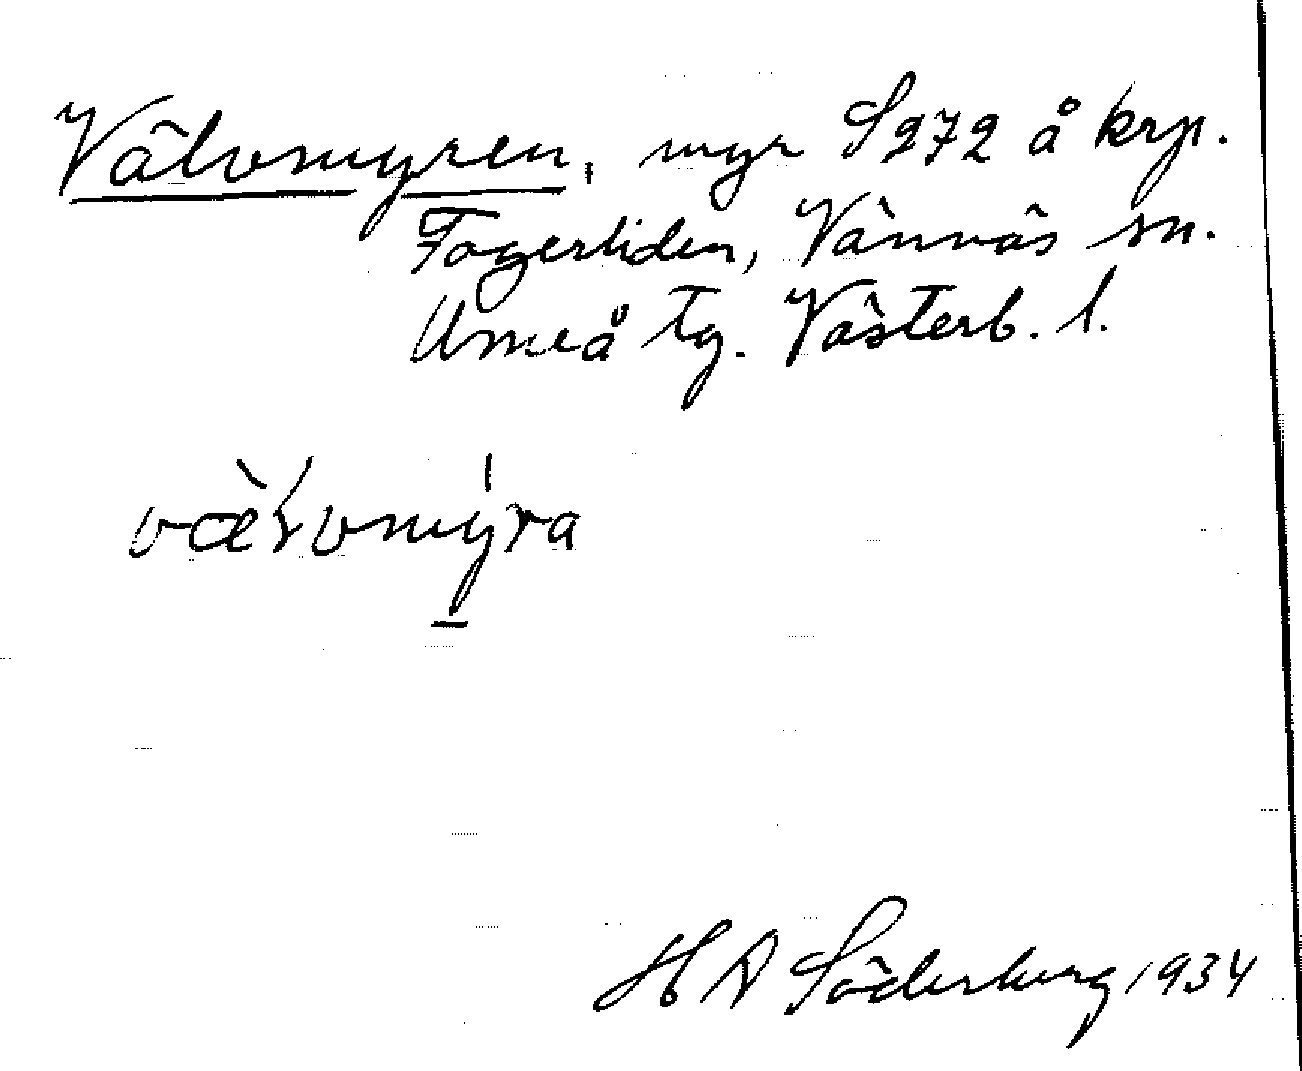 Välvmyren, myr S 272 å krp.
Fagerliden, Vännäs sn.
Umeå tg. Västerb. l.
H A Söderberg 1934